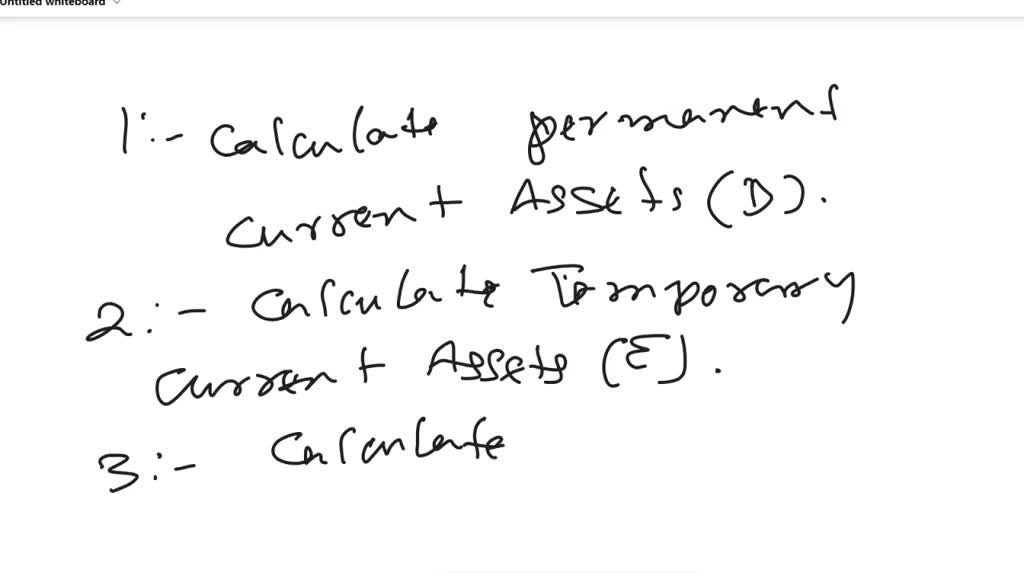 Untitled whiteboard
1:- Calculate permanent
Current Assets (D).
2:- Calculate Temporary
Current Assets (E).
3:- Calculate